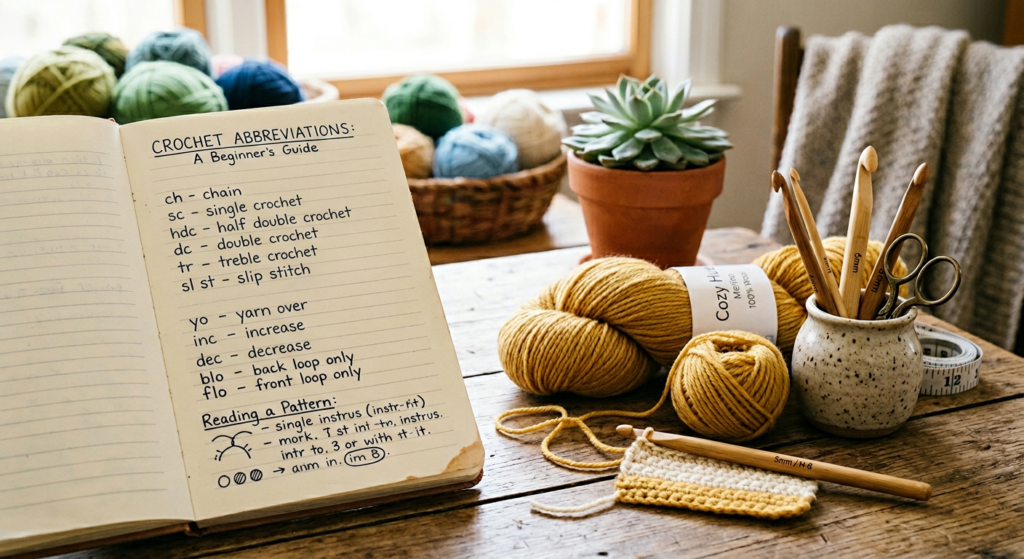 CROCHET ABBREVIATIONS:
A Beginner's Guide
ch – chain
sc – single crochet
hdc – half double crochet
dc – double crochet
tr – treble crochet
sl st – slip stitch
yo – yarn over
inc – increase
dec – decrease
blo – back loop only
flo – front loop only
Reading a Pattern:
– single instrus (instr-fit)
– mork. T st int -tn, instrus.
intr to, 3 or with st it.
→ anm in. im 8
Cozy
Merino
100% Woo
5mm
5mm / H-8
12